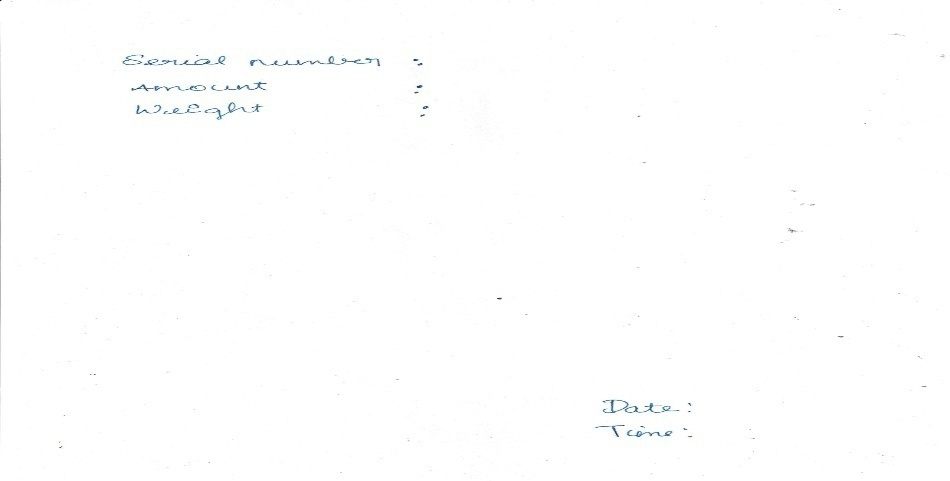 Serial number :
Amount :
Weight :
Date:
Time: